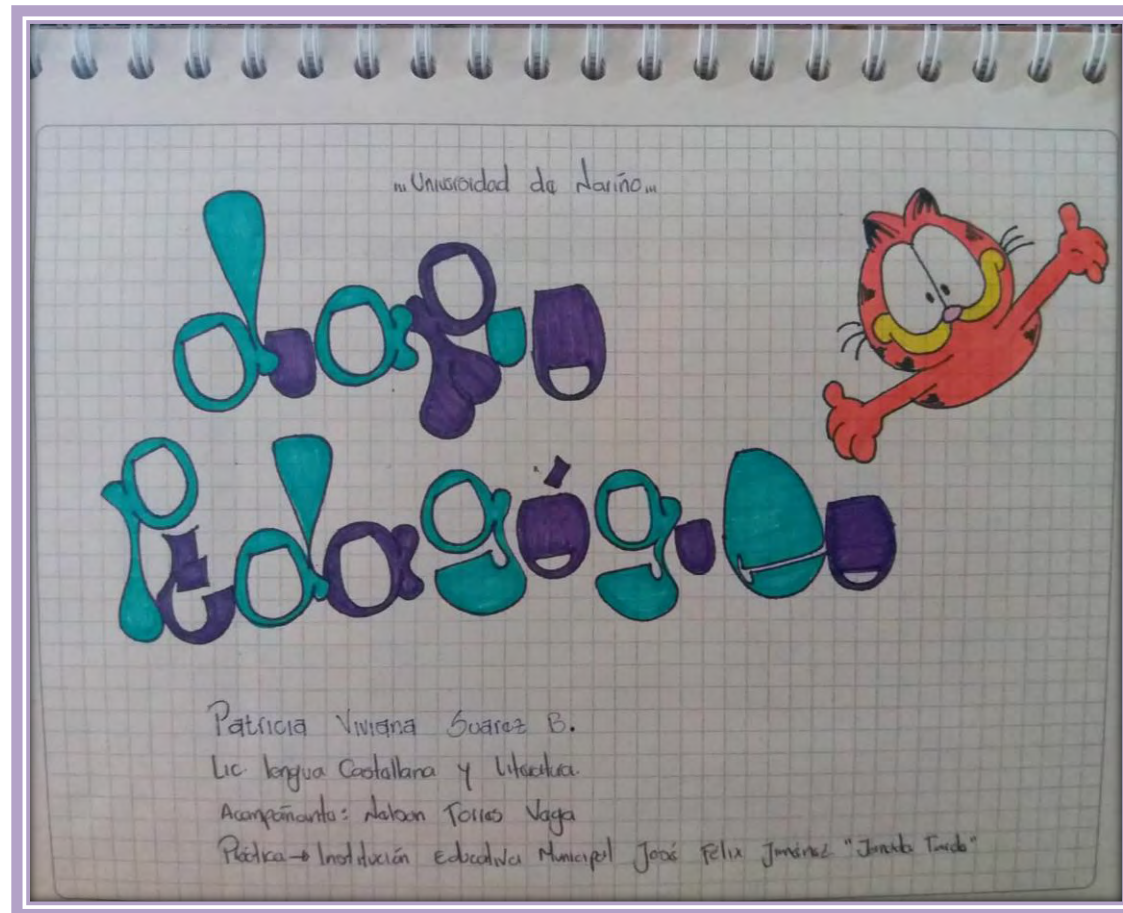 ... Universidad de Nariño ...
diario
Pedagógico
Patricia Viviana Suarez B.
Lic. lengua Castellana y Literatura.
Acompañante: Nelson Torres Vega
Práctica → Institución Educativa Municipal José Félix Jiménez "Jornada Tarde"